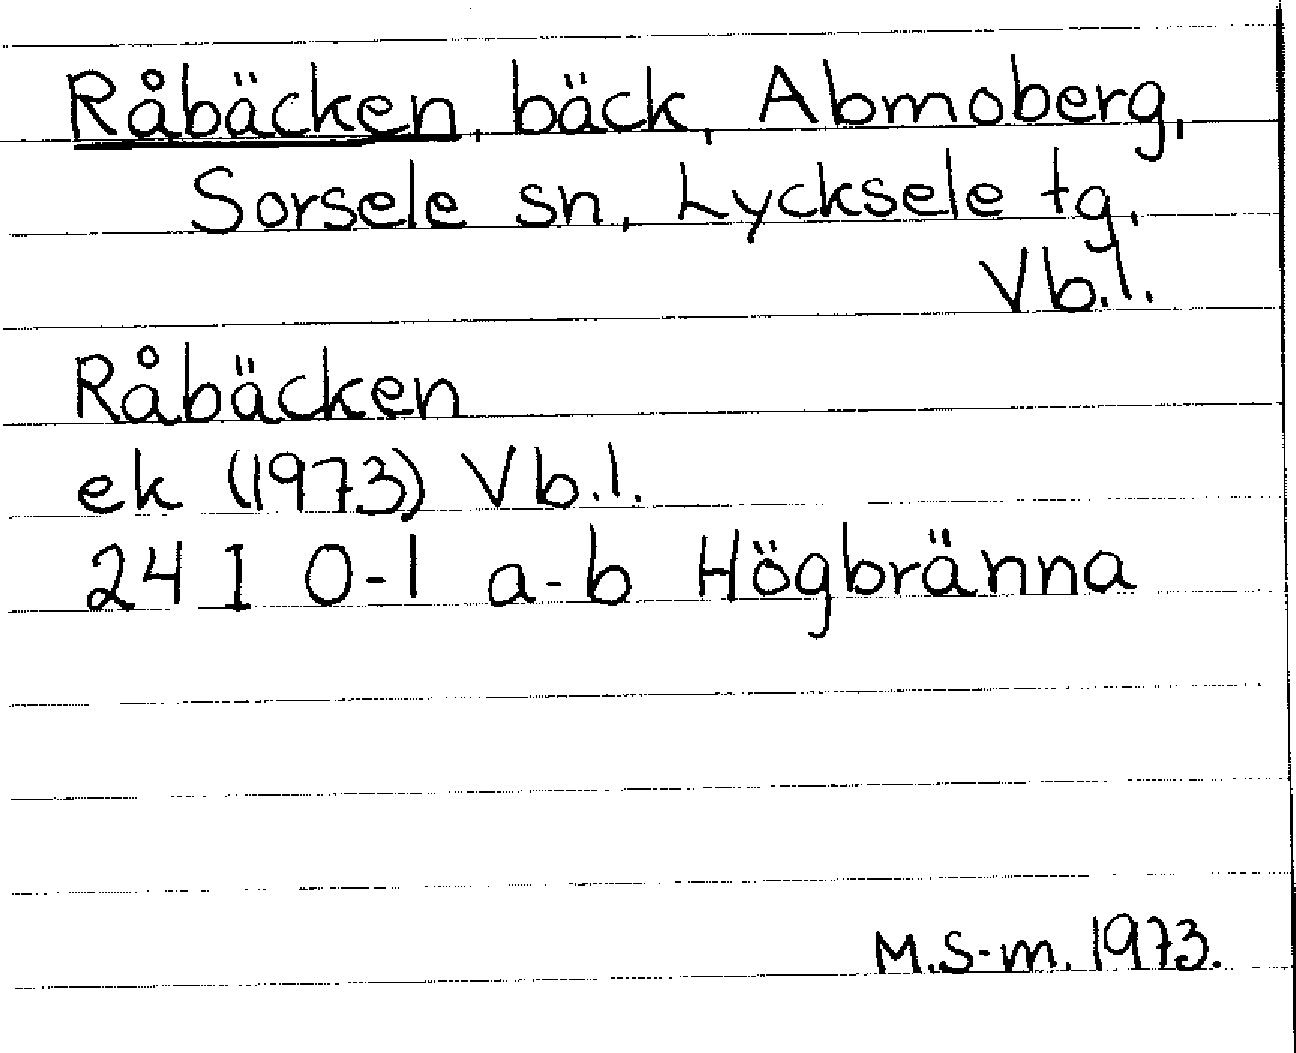 Råbäcken, bäck, Abmoberg,
Sorsele sn, Lycksele tg,
Vb.l.
Råbäcken
ek (1973) Vb.l.
24 I 0-1 a-b Högbränna
M.S-m. 1973.